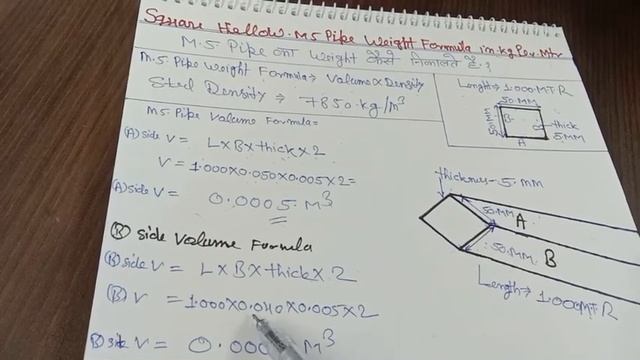 Square Hollow. M.S Pipe Weight Formula in.kg Per. Mtr
M.S Pipe का Weight कैसे निकालते है.?
M.S Pipe Weight Formula → Volume × Density
Steel Density → 7850.kg/m³
M.S Pipe Volume Formula =
(A) side V = L×B×thick×2
V = 1.000×0.050×0.005×2=
(A) side V = 0.0005. M³
(B) Side Volume Formula
(B) side V = L×B×thick×2
(B) V = 1.000×0.040×0.005×2
(B) side V = M³
Length → 1.000.MTR
50.MM
50.MM
B
thick
5.MM
A
thicknes - 5. MM
50.MM A
50.MM. B
Length → 1.000MTR